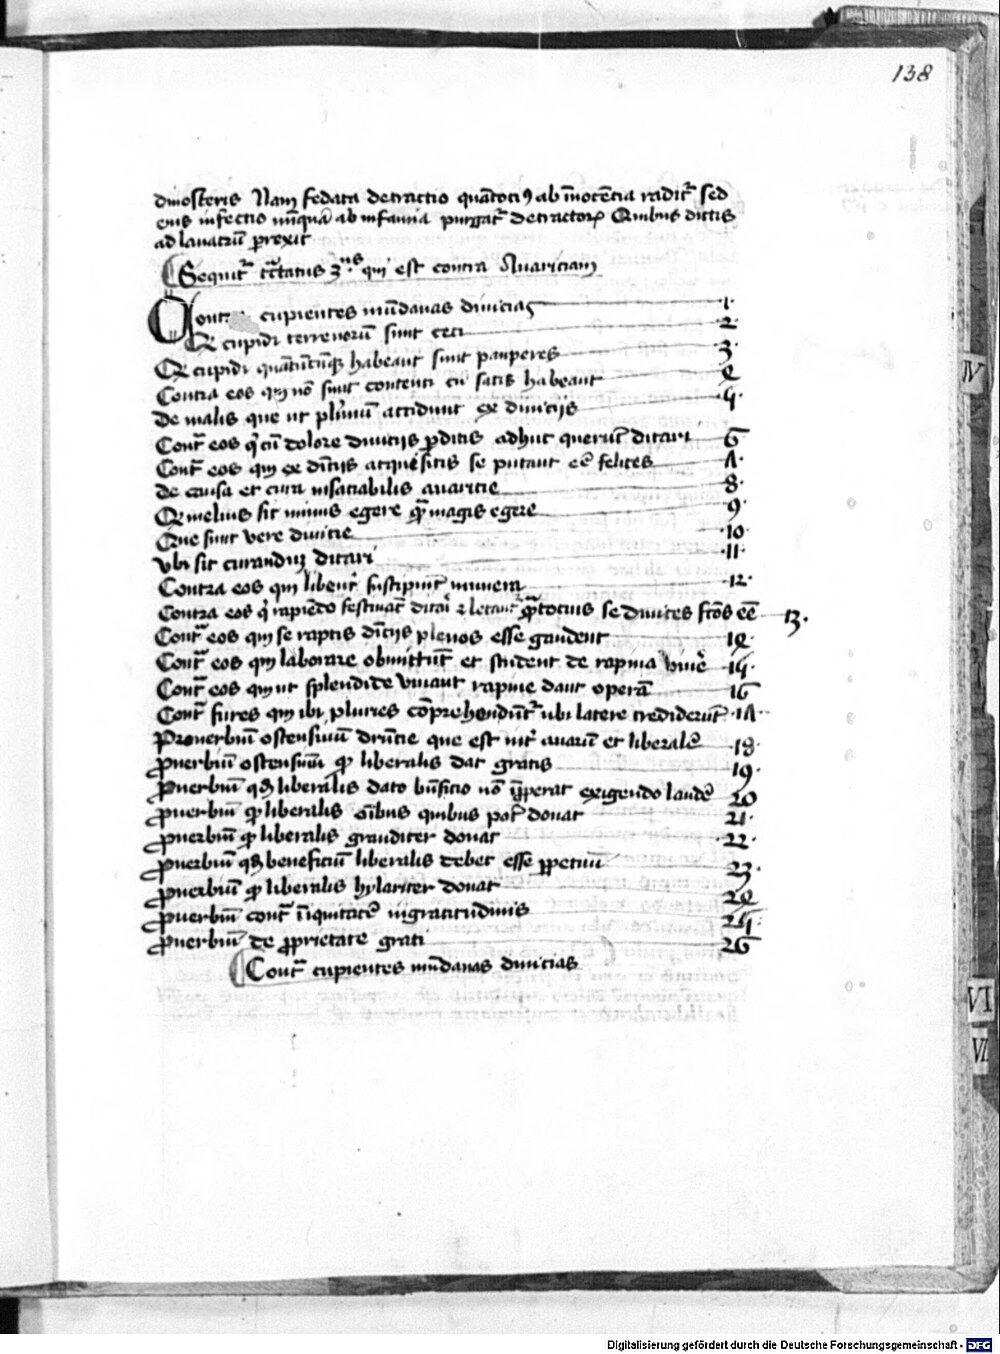 138
dinosteris Nam fedata detractio quātoci9 ab īnocētia radit᷑ sed
eius infectio nūquā ab infamia purgat᷑ detractorꝝ Quibus dictis
ad lauatrū perexit
Sequit᷑ tc̄tatus 3us qui est contra Auariciam
Cont cupientes mūdanas diuicias 1
Ꝙ cupidi terrenorū sunt ceci 2
Ꝙ cupidi quātūcūqꝫ habeant sunt pauperes 3
Contra eos qui nō sunt contenti cū satis habeant 4
De malis que ut plīmū accidunt ex diuicijs 5
Cont᷑ eos qi cū dolore diuicijs ꝑditis adhuc querūt ditari 6
Cont᷑ eos qui ex diūcijs acquesitis se putant eē felices 7
de causa et cura insaciabilis auaritie 8
Ꝙ melius sit minus egere qᷓm magis egere 9
Que sunt vere diuicie 10
vbi sit curandūꝫ ditari 11
Contra eos qui libent᷑ suscipiūt munera 12
Contra eos qi rapiēdo festināt ditari ⁊ letant᷑ se diuites fc̄os eē 13
Cont᷑ eos qui se raptis diūcijs plenos esse gaudent 14
Cont᷑ eos qui laborare obmittūt et student de rapina viue᷑ 15
Cont᷑ eos qui ut splendide viuant rapine dant operā 16
Cont᷑ fures qui ibi pluries cōprehendūt᷑ ubi latere crediderūt 17
Prouerbiū ostensiuū dr̄ntie que est int᷑ auarū et liberalē 18
ꝓuerbiū ostensiuū ꝙ liberalis dat gratis 19
ꝓuerbiū qd liberalis dato būficio nō īꝑperat exigendo laudē 20
ꝓuerbiū ꝙ liberalis oībus quibus pot᷑ donat 21
ꝓuerbiū ꝙ liberalis granditer donat 22
ꝓuerbiū qd beneficiū liberalis debet esse ꝑpetuū 23
ꝓuerbiū ꝙ liberalis hylariter donat 24
ꝓuerbiū cont᷑ īiquitatē ingratitudinis 25
ꝓuerbiū de ꝓprietate grati 26
Cont᷑ cupientes mūdanas diuicias
IV
VI
VI
Digitalisierung gefördert durch die Deutsche Forschungsgemeinschaft - DFG